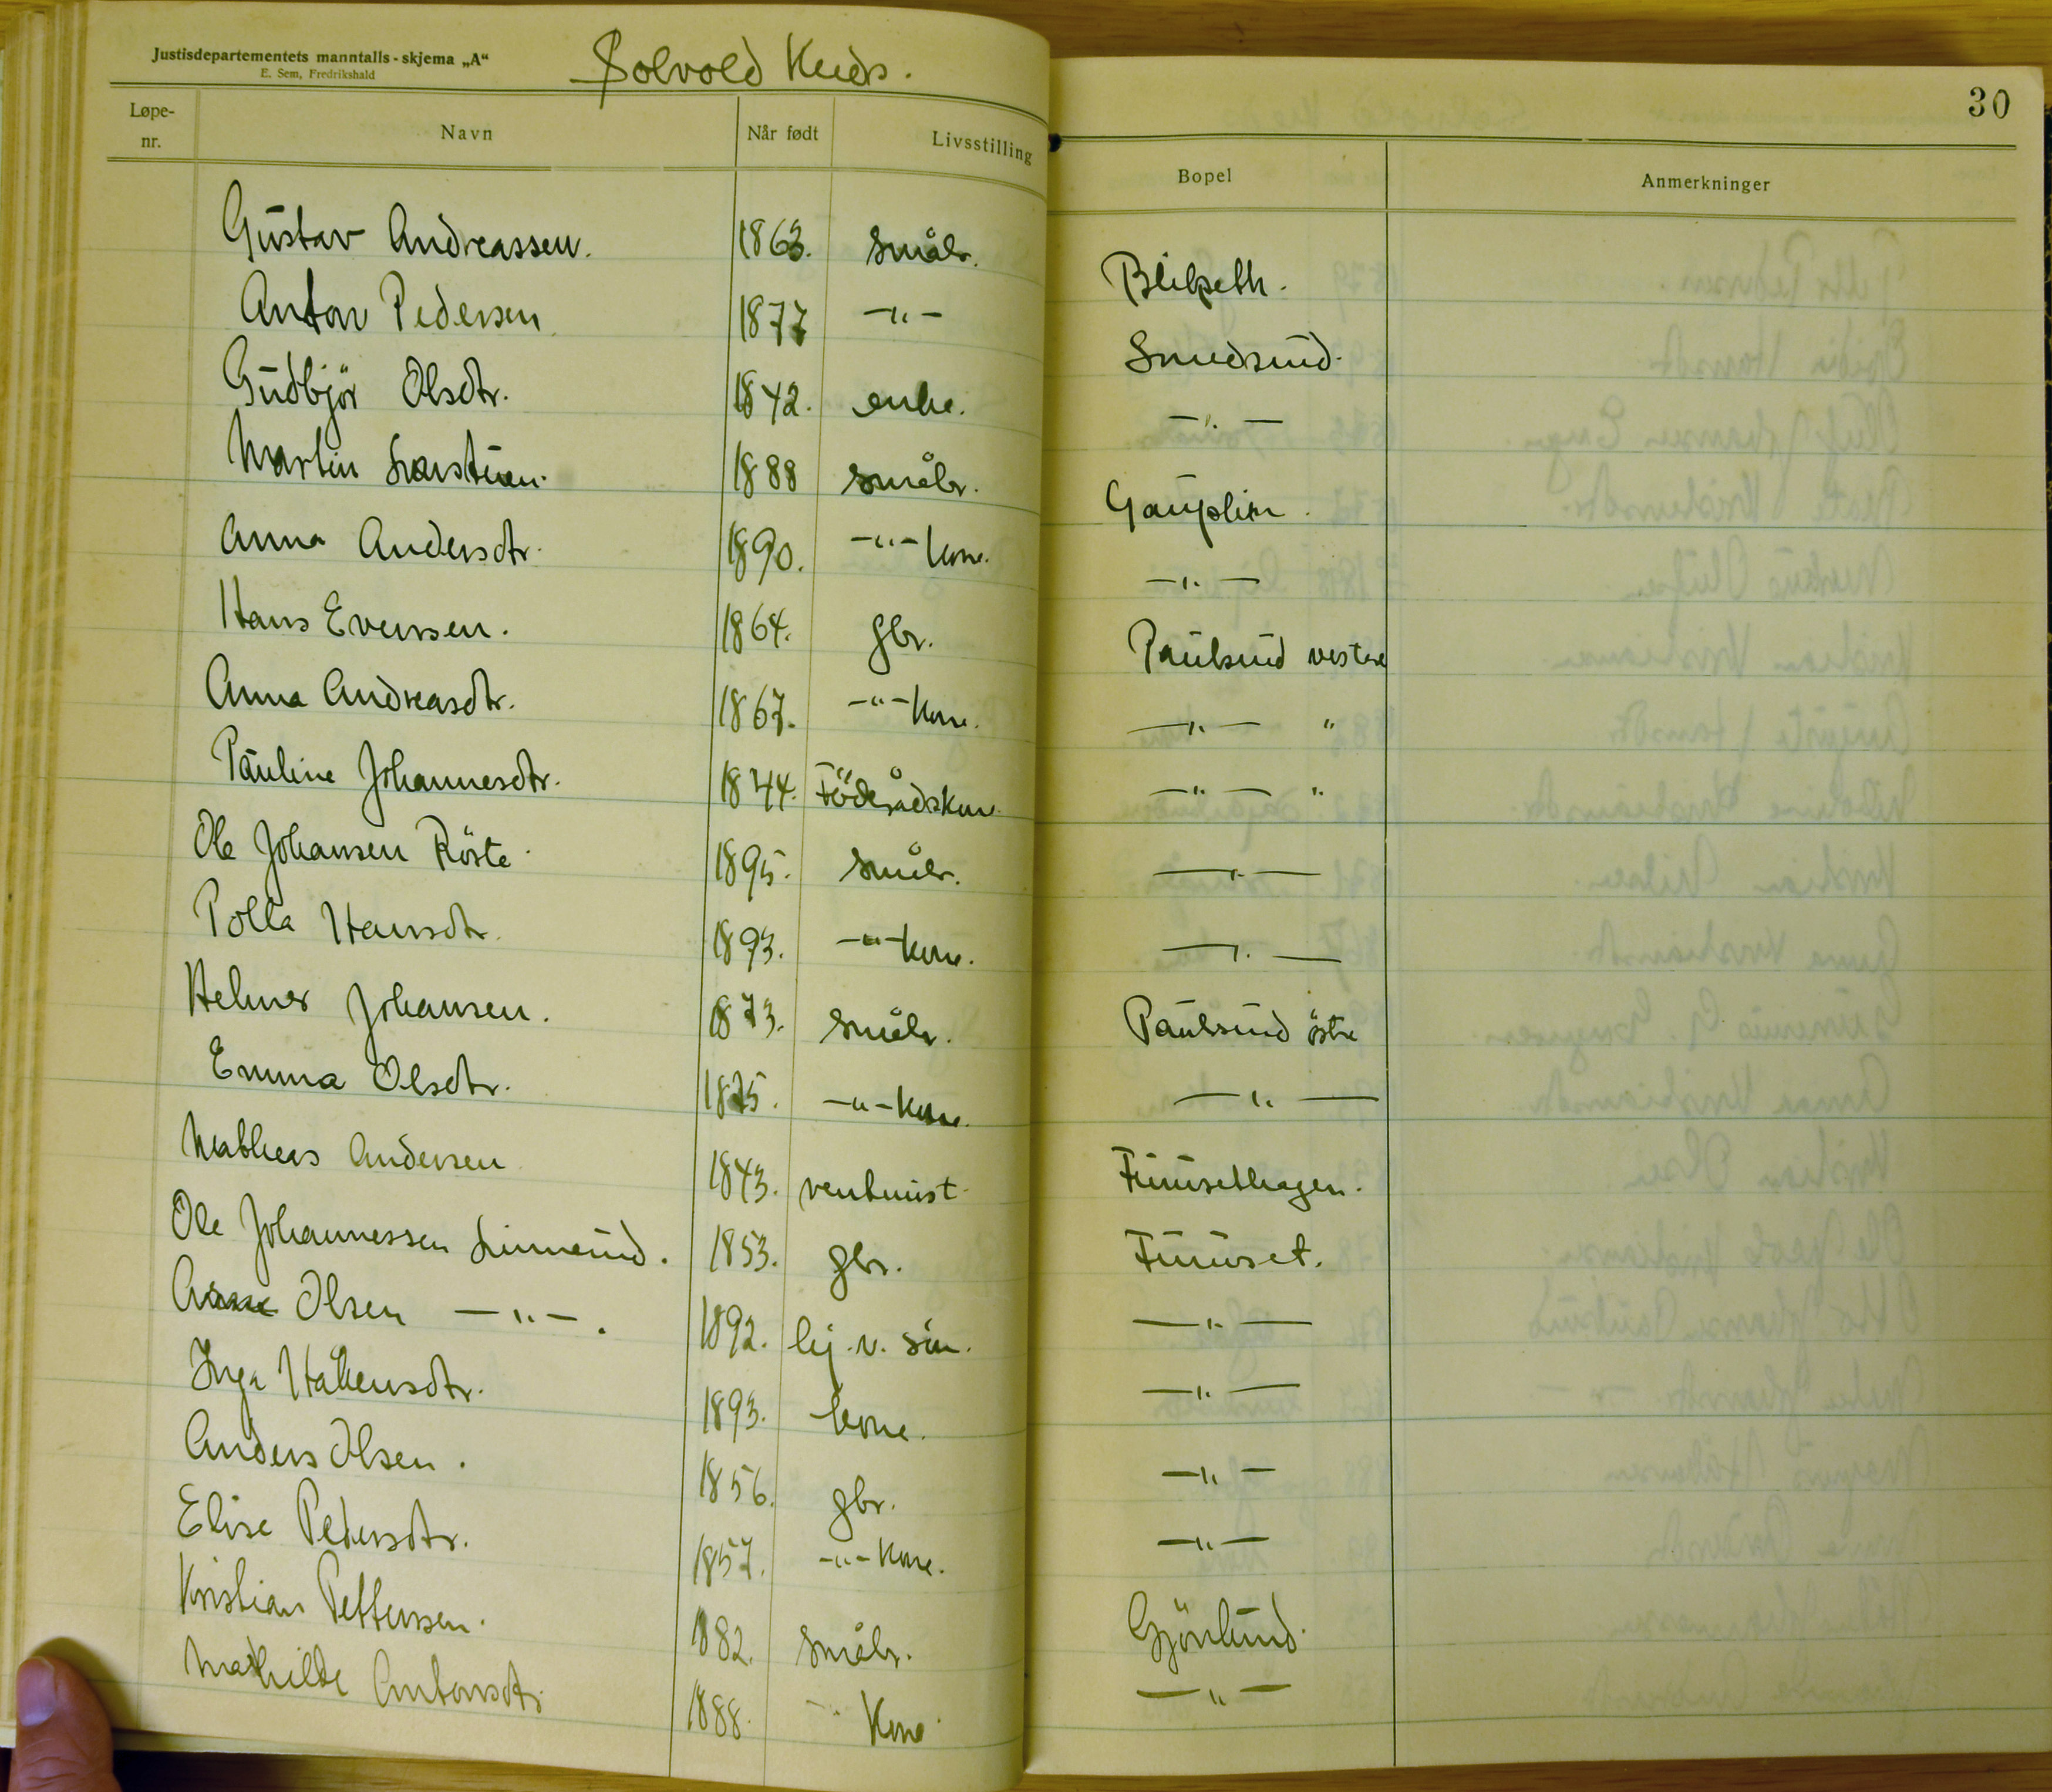 Justisdepartementets manntalls-skjema „A“
E. Sem, Fredrikshald
Solvold Kreds.
30
Løpe-nr. Navn Når født Livsstilling Bopel Anmerkninger
Gustav Andreassen. 1863. småbr. Blikseth.
Anton Pedersen 1877 -"- Smedsund.
Gudbjör Olsdtr. 1842. enke. -"-
Martin Larstuen. 1888 småbr. Gauplien.
Anna Andersdtr. 1890. -"- kone. -"-
Hans Evensen. 1864. gbr. Paulsrud vestre
Anna Andreasdtr. 1867. -"- kone. -"- "
Pauline Johannesdtr. 1844. Föderådskone -"- "
Ole Johansen Röste 1895. småbr. -"-
Polla Hansdtr. 1893. -"- kone. -"-
Helmer Johansen. 1873. småbr. Paulsrud östre
Emma Olsdtr. 1875. -"- kone. -"-
Mathias Andersen 1843. rentenist Finnsethagen.
Ole Johannessen Linnerud. 1853. gbr. Finnset.
Olsen -"-. 1892. hj. v. sön. -"-
Inga Håkensdtr. 1893. kone. -"-
Anders Olsen. 1856. gbr. -"-
Elise Pedersdtr. 1857. -"- kone. -"-
Kristian Pettersen. 1882. småbr. Gjörlund.
Mathilde Antonsdtr. 1888. Kone -"-